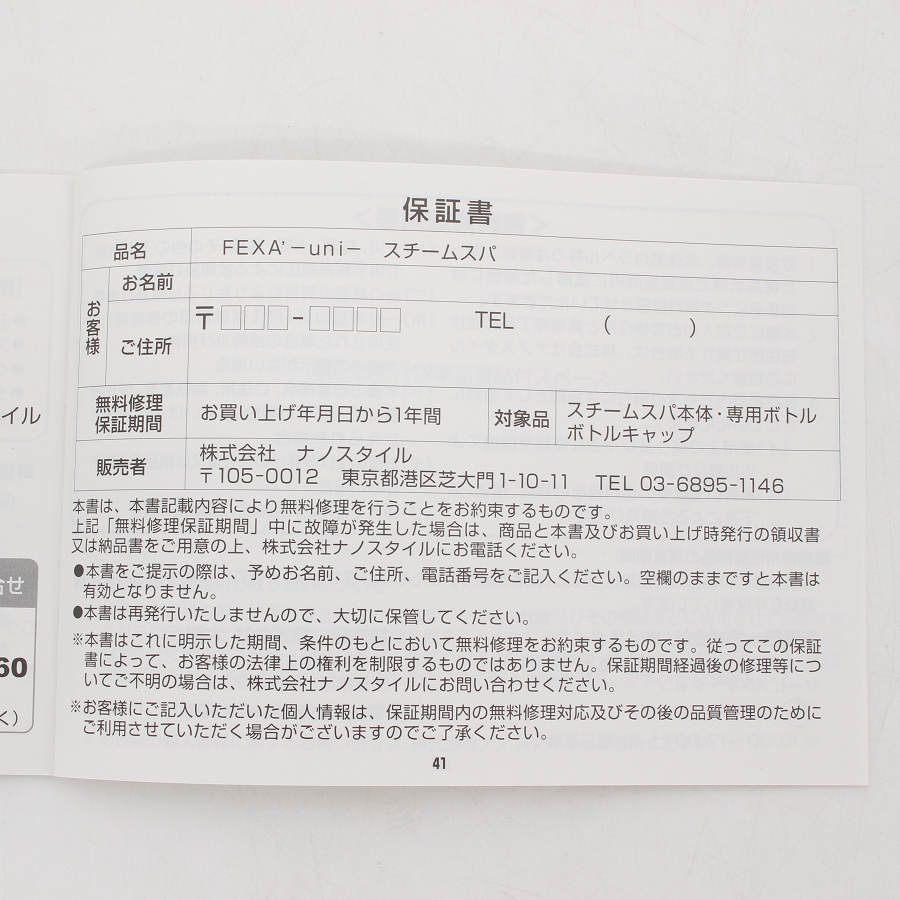 保証書
品名 FEXA'-uni- スチームスパ
お客様
お名前
ご住所 〒□□□-□□□□ TEL ( )
無料修理
保証期間
お買い上げ年月日から1年間
対象品
スチームスパ本体・専用ボトル
ボトルキャップ
販売者
株式会社 ナノスタイル
〒105-0012 東京都港区芝大門1-10-11 TEL 03-6895-1146
本書は、本書記載内容により無料修理を行うことをお約束するものです。
上記「無料修理保証期間」中に故障が発生した場合は、商品と本書及びお買い上げ時発行の領収書
又は納品書をご用意の上、株式会社ナノスタイルにお電話ください。
●本書をご提示の際は、予めお名前、ご住所、電話番号をご記入ください。空欄のままですと本書は
有効となりません。
●本書は再発行いたしませんので、大切に保管してください。
※本書はこれに明示した期間、条件のもとにおいて無料修理をお約束するものです。従ってこの保証
書によって、お客様の法律上の権利を制限するものではありません。保証期間経過後の修理等につ
いてご不明の場合は、株式会社ナノスタイルにお問い合わせください。
※お客様にご記入いただいた個人情報は、保証期間内の無料修理対応及びその後の品質管理のために
ご利用させていただく場合がございますのでご了承ください。
41
イル
合せ
60
く）